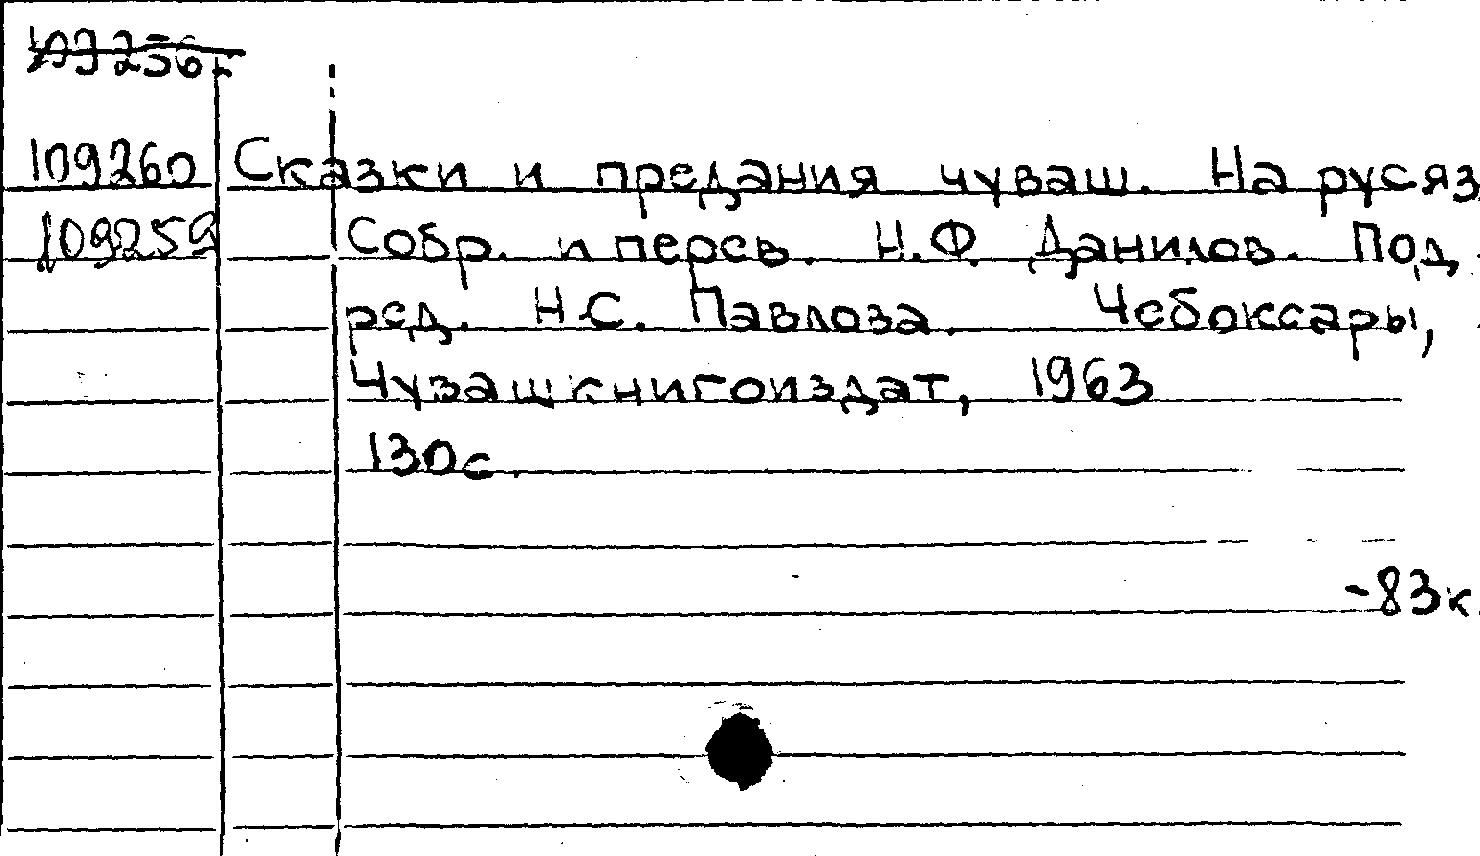 109256-
109260 Сказки и предания чуваш. На рус яз
109259 Собр. и перев. Н.Ф. Данилов. Под
ред. Н.С. Павлова. Чебоксары,
Чувашкнигоиздат, 1963
130с.
-83к.